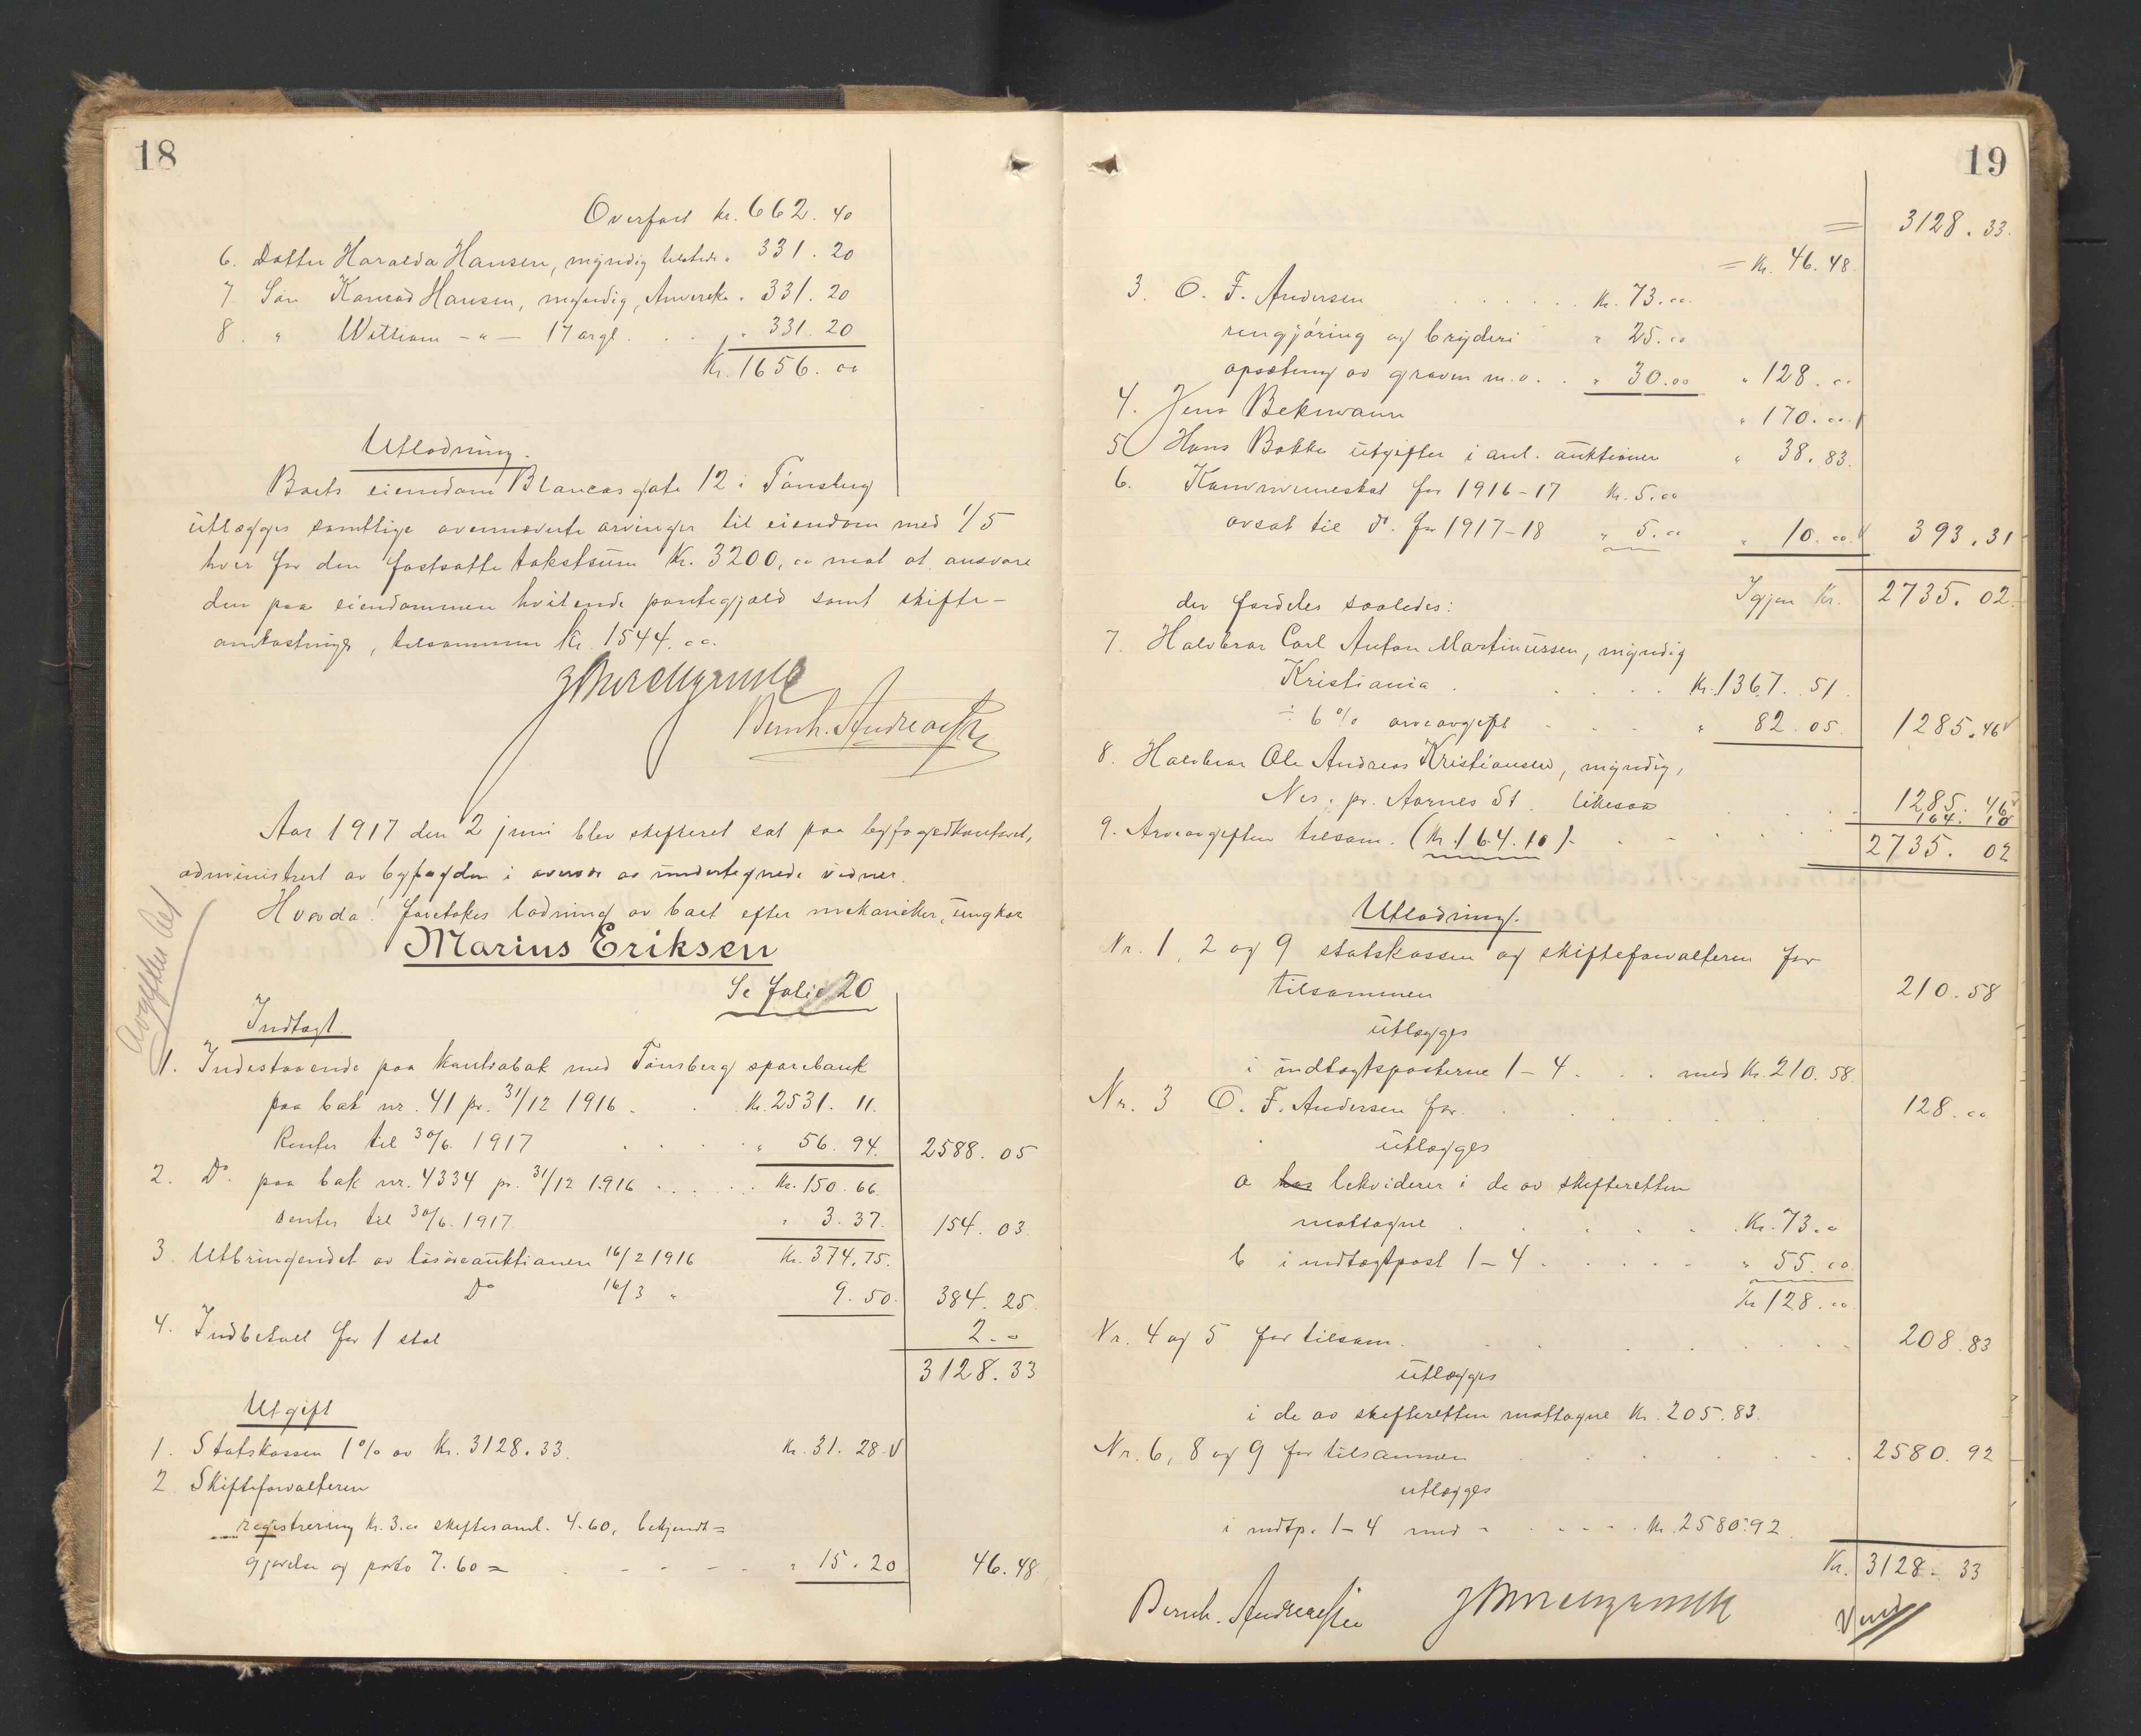 18
Overført kr. 662.40
6. Datter Haralda Hansen, myndig tilstede " 331.20
7 Søn Konrad Hansen, myndig, Amerika " 331.20
8. " William - " - 17 aar gl. . . " 331.20
Kr. 1656.00
Utlodning.
Boets eiendom Blancasgate 12 i Tønsberg
utlægges samtlige ovennævnte arvinger til eiendom med 1/5
hver for den fastsatte takstsum Kr. 3200,00 mot at ansvare
den paa eiendommen hvilende pantegjæld samt skifte-
omkostninger, tilsammen Kr. 1544.00.
Bernh. Andreassen
Aar 1917 den 2 juni blev skifteret sat paa byfogedkontoret,
administrert av byfogden i overvær av undertegnede vidner.
Hvorda! foretokes lodning av boet efter mekaniker, ungkar
Marius Eriksen
Se folio 20
Avgiften bet
Indtægt.
1. Indestaaende paa kontrabok med Tønsberg sparebank
paa bok nr. 41 pr. 31/12 1916 . . Kr. 2531.11.
Renter til 30/6. 1917 . . . . " 56.94. 2588.05
2. Do. paa bok nr. 4334 pr. 31/12 1916 . . . . Kr. 150.66.
renter til 30/6. 1917 " 3.37. 154.03
3. Utbringendet av løsøreauktionen 16/2 1916 Kr. 374.75.
Do 16/3 " 9.50. 384.25.
4. Indbetalt for 1 stol 2.-
3128.33
Utgift
1. Statskassen 1% av Kr. 3128.33. Kr. 31.28
2 Skifteforvalteren
registrering Kr. 3.00 skiftesaml. 4.60, bekjendt=
gjørelse og porto 7.60 = . . . . " 15.20 46.48
19
= 3128.33.
= Kr. 46.48.
3. O. F. Andersen . . . . . . Kr. 73.00.
rengjøring og bryderi " 25.00
opsætning av graven m.v. . " 30.00 " 128.00
4. Jens Bekmann " 170.00
5 Hans Bakke utgifter i anl. auktionen " 38.83.
6. Kommuneskat for 1916-17 Kr. 5.00
avsat til do. for 1917-18 " 5.00 " 10.00 393.31
Igjen Kr. 2735.02
der fordeles saaledes:
7. Halvbror Carl Anton Martinussen, myndig
Kristiania . . . . . Kr. 1367.51.
÷ 6% arveavgift . . . . " 82.05. 1285.46
8. Halvbror Ole Andreas Kristiansen, myndig,
Nes. pr. Aarnes St. likesaa . . . 1285.46
9. Arveavgiften tilsam. (Kr. 164.10). . . . . 164.10
2735.02
Utlodning.
Nr. 1, 2 og 9 statskassen og skifteforvalteren for
tilsammen 210.58
utlægges
i indtægtsposterne 1-4 . . . med Kr. 210.58.
Nr. 3 O. F. Andersen for . . . . . 128.00
utlægges
a har likviderer i de av skifteretten
mottagne . . . . . . Kr. 73.0
b i indtægtpost 1-4 . . . . . " 55.00.
Kr 128.00.
Nr. 4 og 5 for tilsam. . . . . . . . 208.83
utlægges
i de av skifteretten mottagne Kr. 205.83.
Nr. 6, 8 og 9 for tilsammen . . . . . 2580.92
utlægges
i indtp. 1-4 med - . - - - . Kr. 2580.92.
Kr. 3128.33
Bernh. Andreassen
Vend